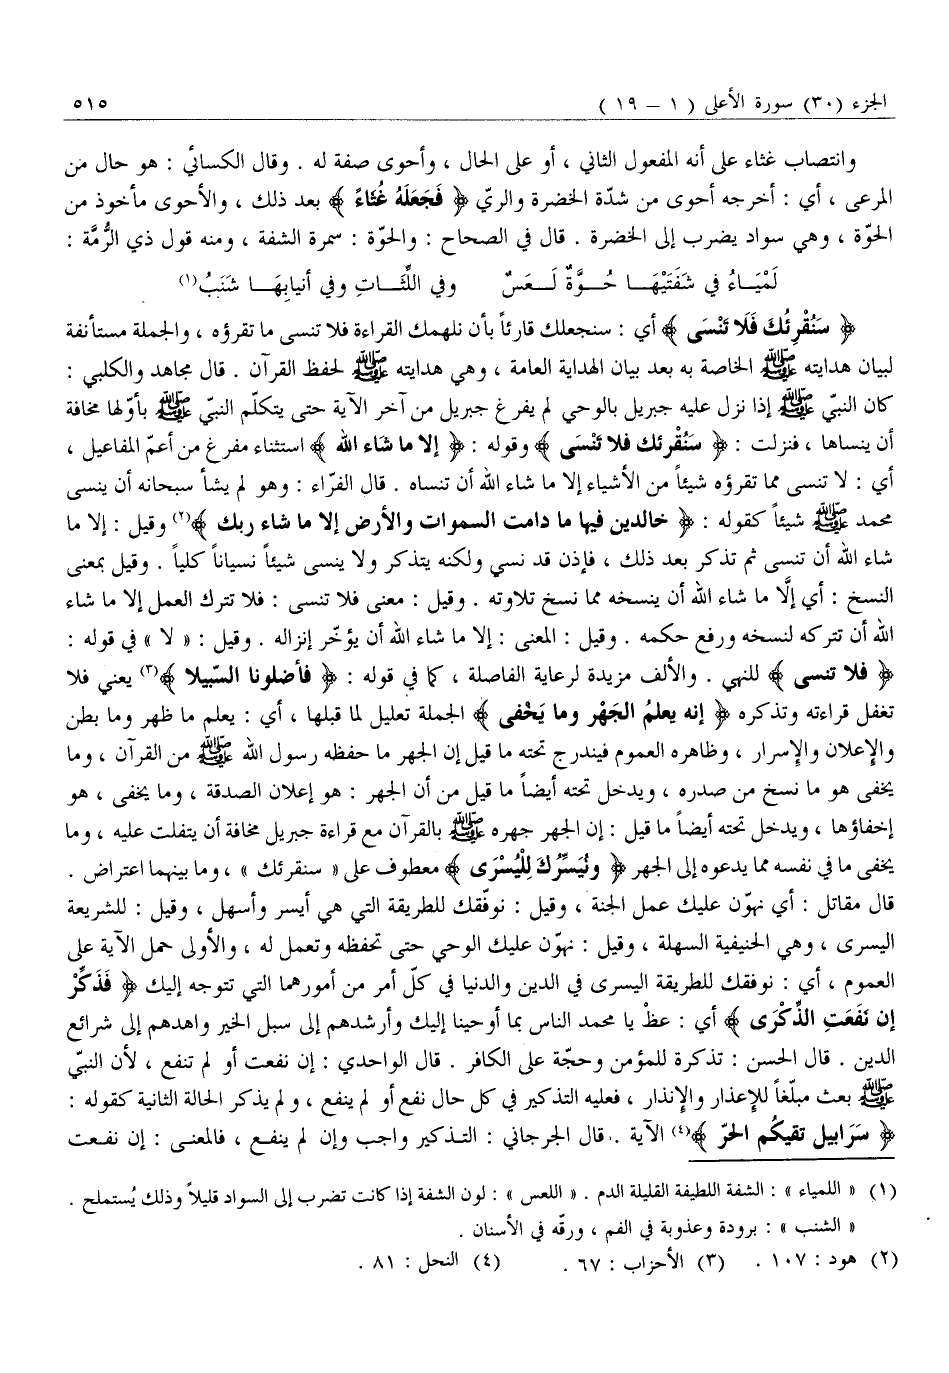 الجزء (٣٠) سورة الأعلى ( ١ – ١٩ ) ٥١٥
وانتصاب غثاء على أنه المفعول الثاني ، أو على الحال ، وأحوى صفة له . وقال الكسائي : هو حال من
المرعى ، أي : أخرجه أحوى من شدّة الخضرة والريّ ﴿ فَجَعَلَهُ غُثَاءً ﴾ بعد ذلك ، والأحوى مأخوذ من
الحوّة ، وهي سواد يضرب إلى الخضرة . قال في الصحاح : والحوّة : سمرة الشفة ، ومنه قول ذي الرُّمَّة :
لَمْيَـاءُ في شَفَتَيْهَـا حُـوَّةٌ لَـعَسٌ وفي اللِّثَـاتِ وفي أنيابِهَـا شَنَبُ(١)
﴿ سَنُقْرِئُكَ فَلَا تَنْسَى ﴾ أي : سنجعلك قارئاً بأن نلهمك القراءة فلا تنسى ما تقرؤه ، والجملة مستأنفة
لبيان هدايته ﷺ الخاصة به بعد بيان الهداية العامة ، وهي هدايته ﷺ لحفظ القرآن . قال مجاهد والكلبي :
كان النبيّ ﷺ إذا نزل عليه جبريل بالوحي لم يفرغ جبريل من آخر الآية حتى يتكلّم النبيّ ﷺ بأوّلها مخافة
أن ينساها ، فنزلت : ﴿ سَنُقْرئك فلا تَنْسَى ﴾ وقوله : ﴿ إلا ما شاء الله ﴾ استثناء مفرغ من أعمّ المفاعيل ،
أي : لا تنسى مما تقرؤه شيئاً من الأشياء إلا ما شاء الله أن تنساه . قال الفرّاء : وهو لم يشأ سبحانه أن ينسى
محمد ﷺ شيئاً كقوله : ﴿ خالدين فيها ما دامت السموات والأرض إلا ما شاء ربك ﴾(٢) وقيل : إلا ما
شاء الله أن تنسى ثم تذكر بعد ذلك ، فإذن قد نسي ولكنه يتذكر ولا ينسى شيئاً نسياناً كلياً . وقيل بمعنى
النسخ : أي إلَّا ما شاء الله أن ينسخه مما نسخ تلاوته . وقيل : معنى فلا تنسى : فلا تترك العمل إلا ما شاء
الله أن تتركه لنسخه ورفع حكمه . وقيل : المعنى : إلا ما شاء الله أن يؤخّر إنزاله . وقيل : « لا » في قوله :
﴿ فلا تنسى ﴾ للنهي . والألف مزيدة لرعاية الفاصلة ، كما في قوله : ﴿ فأضلونا السّبيلا ﴾(٣) يعني فلا
تغفل قراءته وتذكره ﴿ إنه يعلمُ الجَهْر وما يَخْفى ﴾ الجملة تعليل لما قبلها ، أي : يعلم ما ظهر وما بطن
والإعلان والإسرار ، وظاهره العموم فيندرج تحته ما قيل إن الجهر ما حفظه رسول الله ﷺ من القرآن ، وما
يخفى هو ما نسخ من صدره ، ويدخل تحته أيضاً ما قيل من أن الجهر : هو إعلان الصدقة ، وما يخفى ، هو
إخفاؤها ، ويدخل تحته أيضاً ما قيل : إن الجهر جهره ﷺ بالقرآن مع قراءة جبريل مخافة أن يتفلت عليه ، وما
يخفى ما في نفسه مما يدعوه إلى الجهر ﴿ ونُيَسِّرُكَ لِلْيُسْرَى ﴾ معطوف على « سنقرئك » ، وما بينهما اعتراض .
قال مقاتل : أي نهوّن عليك عمل الجنة ، وقيل : نوفّقك للطريقة التي هي أيسر وأسهل ، وقيل : للشريعة
اليسرى ، وهي الحنيفية السهلة ، وقيل : نهوّن عليك الوحي حتى تحفظه وتعمل له ، والأولى حمل الآية على
العموم ، أي : نوفقك للطريقة اليسرى في الدين والدنيا في كلّ أمر من أمورهما التي تتوجه إليك ﴿ فَذَكِّرْ
إن نَفَعَتِ الذِّكْرَى ﴾ أي : عظْ يا محمد الناس بما أوحينا إليك وأرشدهم إلى سبل الخير واهدهم إلى شرائع
الدين . قال الحسن : تذكرة للمؤمن وحجّة على الكافر . قال الواحدي : إن نفعت أو لم تنفع ، لأن النبيّ
ﷺ بعث مبلّغاً للإعذار والإنذار ، فعليه التذكير في كل حال نفع أو لم ينفع ، ولم يذكر الحالة الثانية كقوله :
﴿ سَرَابيل تقيكُم الحرّ ﴾(٤) الآية . قال الجرجاني : التـذكير واجب وإن لم ينفـع ، فالمعنـى : إن نفـعت
(١) « اللمياء » : الشفة اللطيفة القليلة الدم . « اللعس » : لون الشفة إذا كانت تضرب إلى السواد قليلاً وذلك يُستملح .
« الشنب » : برودة وعذوبة في الفم ، ورقّه في الأسنان .
(٢) هود : ١٠٧ . (٣) الأحزاب : ٦٧ . (٤) النحل : ٨١ .